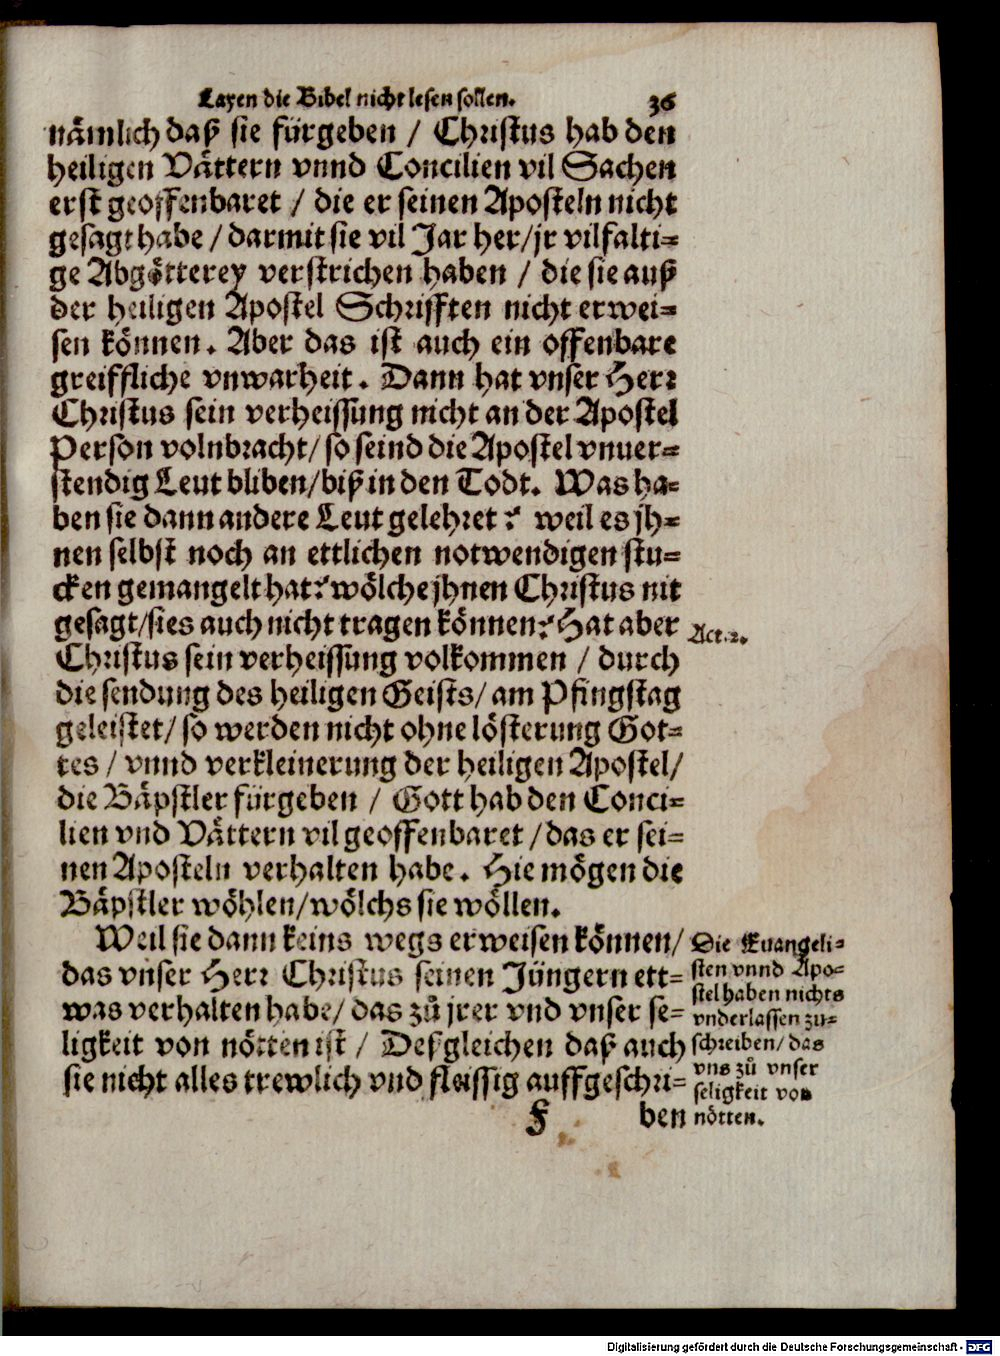 Layen die Bibel nicht lesen sollen. 36
nämlich daß sie fürgeben / Christus hab den
heiligen Vättern vnnd Concilien vil Sachen
erst geoffenbaret / die er seinen Aposteln nicht
gesagt habe / darmit sie vil Jar her/jr vilfalti=
ge Abgötterey verstrichen haben / die sie auß
der heiligen Apostel Schrifften nicht erwei=
sen können. Aber das ist auch ein offenbare
greiffliche vnwarheit. Dann hat vnser Herr
Christus sein verheissung nicht an der Apostel
Person volnbracht/ so seind die Apostel vnuer=
stendig Leut bliben/biß in den Todt. Was ha=
ben sie dann andere Leut gelehret? weil es jh=
nen selbst noch an ettlichen notwendigen stu=
cken gemangelt hat? wölche jhnen Christus nit
gesagt/sies auch nicht tragen können? Hat aber
Act. 2.
Christus sein verheissung volkommen / durch
die sendung des heiligen Geists/ am Pfingstag
geleistet/ so werden nicht ohne lösterung Got=
tes / vnnd verkleinerung der heiligen Apostel/
die Bäpstler fürgeben / Gott hab den Conci=
lien vnd Vättern vil geoffenbaret /das er sei=
nen Aposteln verhalten habe. Hie mögen die
Bäpstler wöhlen/wölchs sie wöllen.
Weil sie dann keins wegs erweisen können/
das vnser Herr Christus seinen Jüngern ett=
was verhalten habe/ das zů jrer vnd vnser se=
ligkeit von nötten ist / Deßgleichen daß auch
sie nicht alles trewlich vnd fleissig auffgeschri=
F ben
Die Euangeli=
sten vnnd Apo=
stel haben nichts
vnderlassen zu=
schreiben/ das
vns zů vnser
seligkeit von
nötten.
Digitalisierung gefördert durch die Deutsche Forschungsgemeinschaft - DFG